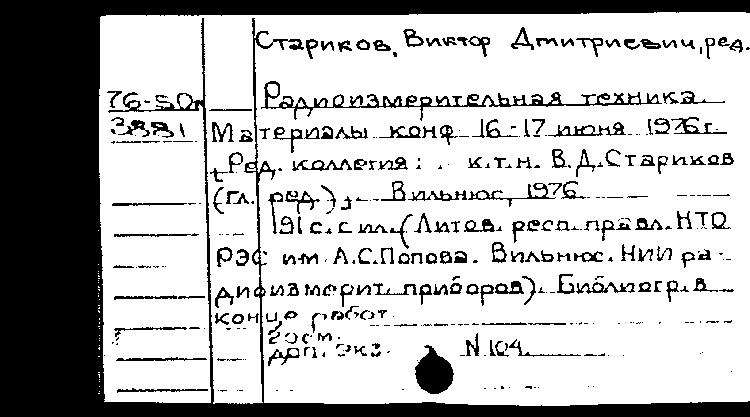 Стариков, Виктор Дмитриевич, ред.
76-5Dп Радиоизмерительная техника.
3881 Материалы конф 16-17 июня 1976 г.
Ред. коллегия: к.т.н. В.Д.Стариков
(гл. ред.), Вильнюс, 1976
191 с. с ил. (Литов. респ. правл. НТО
РЭС им А.С.Попова. Вильнюс. НИИ ра-
диоизмерит. приборов). Библиогр. в
конце работ.
20см.
доп. экз. N 104.